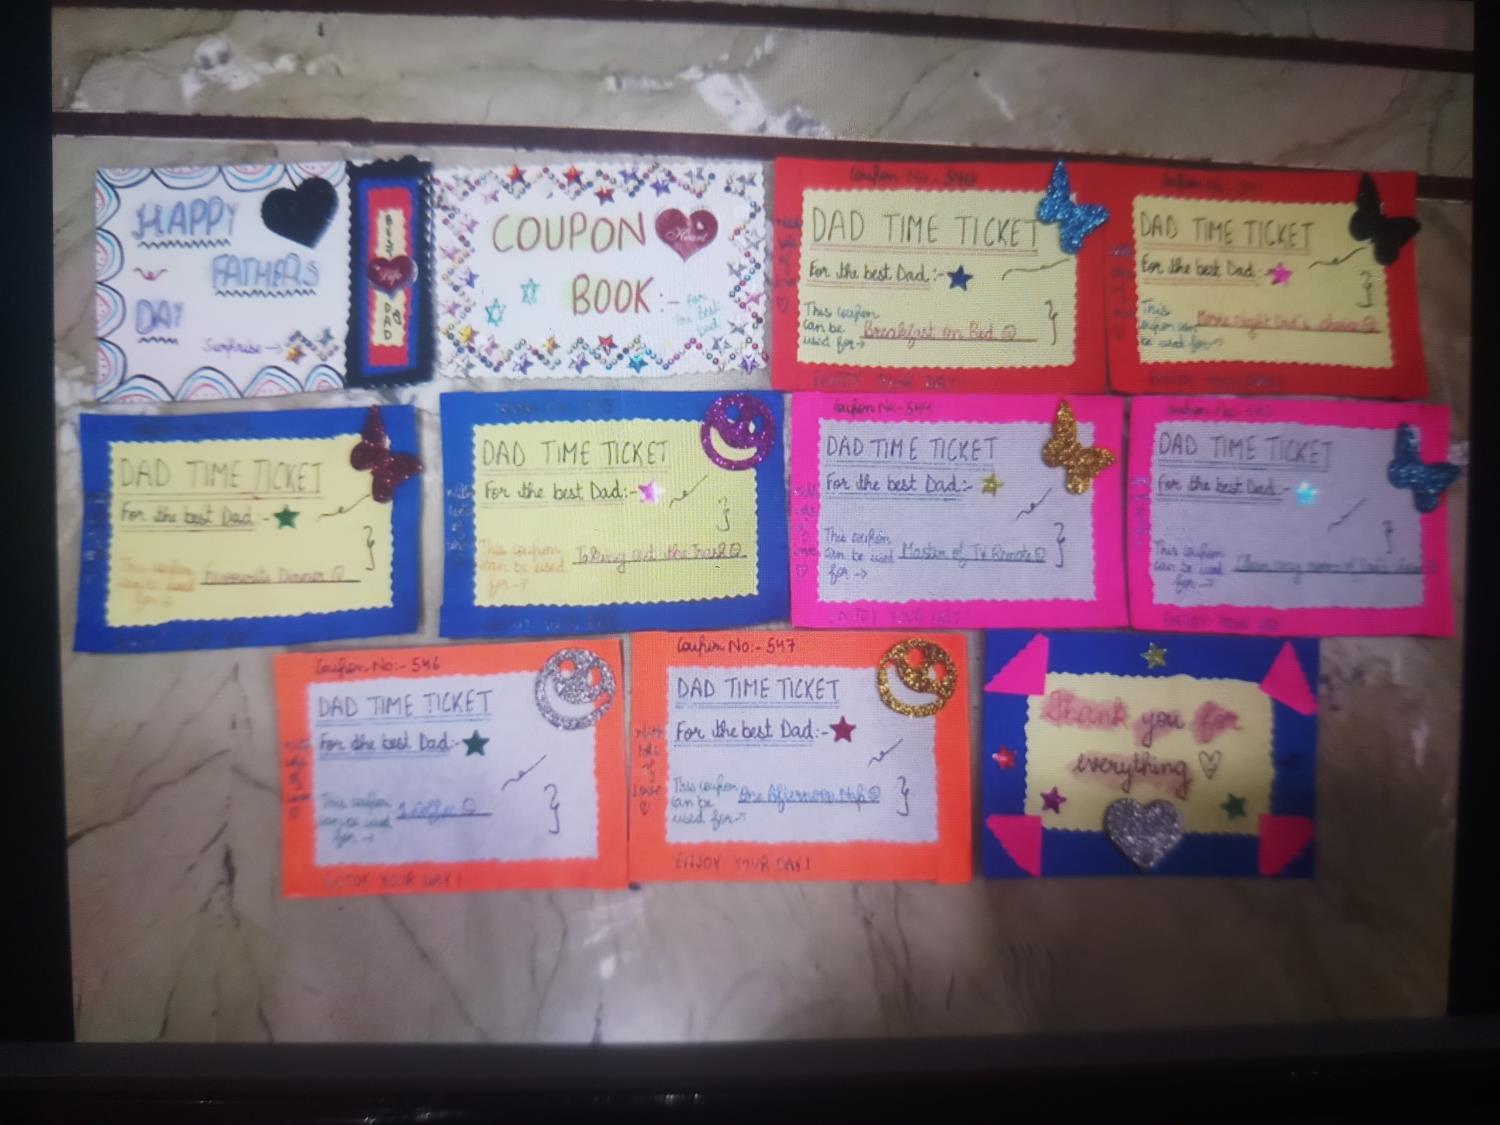 HAPPY
FATHERS
DAY
Surprise
BEST
Life
DAD
COUPON
Heart
BOOK:-
For
the Best
Dad
Coupon No:-
DAD TIME TICKET
For the best Dad:-
This coupon
can be Breakfast on Bed
used for
ENJOY YOUR DAY!
DAD TIME TICKET
For the best Dad:-
This
coupon can Movie Night Dad's choice
be used for
DAD TIME TICKET
For the best Dad:-
This coupon
can be used Favourite Dinner
for
DAD TIME TICKET
For the best Dad:-
This coupon
can be used Taking out the Trash
for
Coupon No:- 544
DAD TIME TICKET
For the best Dad:-
This coupon
can be used Master of TV Remote
for
ENJOY YOUR DAY!
DAD TIME TICKET
For the best Dad:-
This coupon
can be used Clean any room of Dad's
for
Coupon No:- 546
DAD TIME TICKET
For the best Dad:-
This coupon
can be used
for
ENJOY YOUR DAY!
Coupon No:- 547
DAD TIME TICKET
For the best Dad:-
With
lots
of
Love
This coupon
can be One Afternoon Nap
used for
ENJOY YOUR DAY!
Thank you for
everything